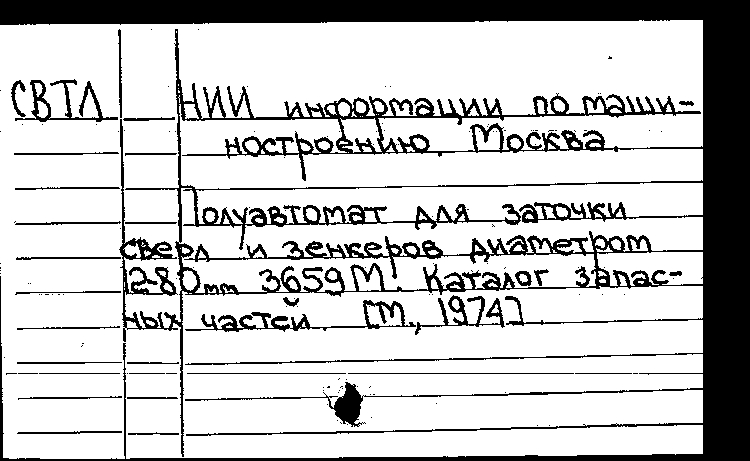 СВТЛ НИИ информации по маши-
ностроению. Москва.
Полуавтомат для заточки
сверл и зенкеров диаметром
12-80mm 3659М. Каталог запас-
ных частей. [М., 1974].